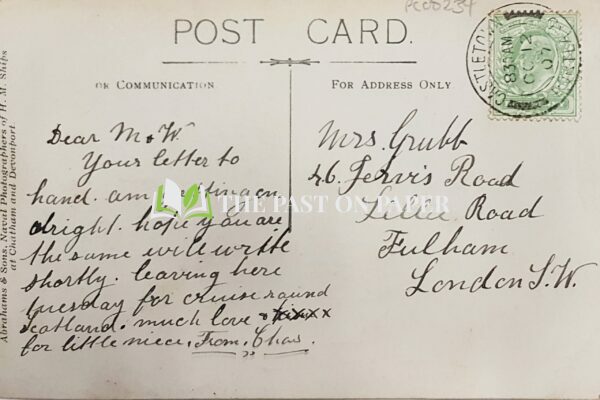 PC00234
POST CARD.
OR COMMUNICATION
FOR ADDRESS ONLY
CASTLETOWN
830AM
OC 12
07
Abrahams & Sons, Naval Photographers of H. M. Ships
at Chatham and Devonport.
Dear M & W.
Your letter to
hand. am getting on
alright. hope you are
the same will write
shortly. leaving here
tuesday for cruise round
Scotland. much love & xxxx
for little niece. From. Chas.
Mrs. Grubb
46. Jervis Road
Lillie Road
Fulham
London S.W.
THE PAST ON PAPER